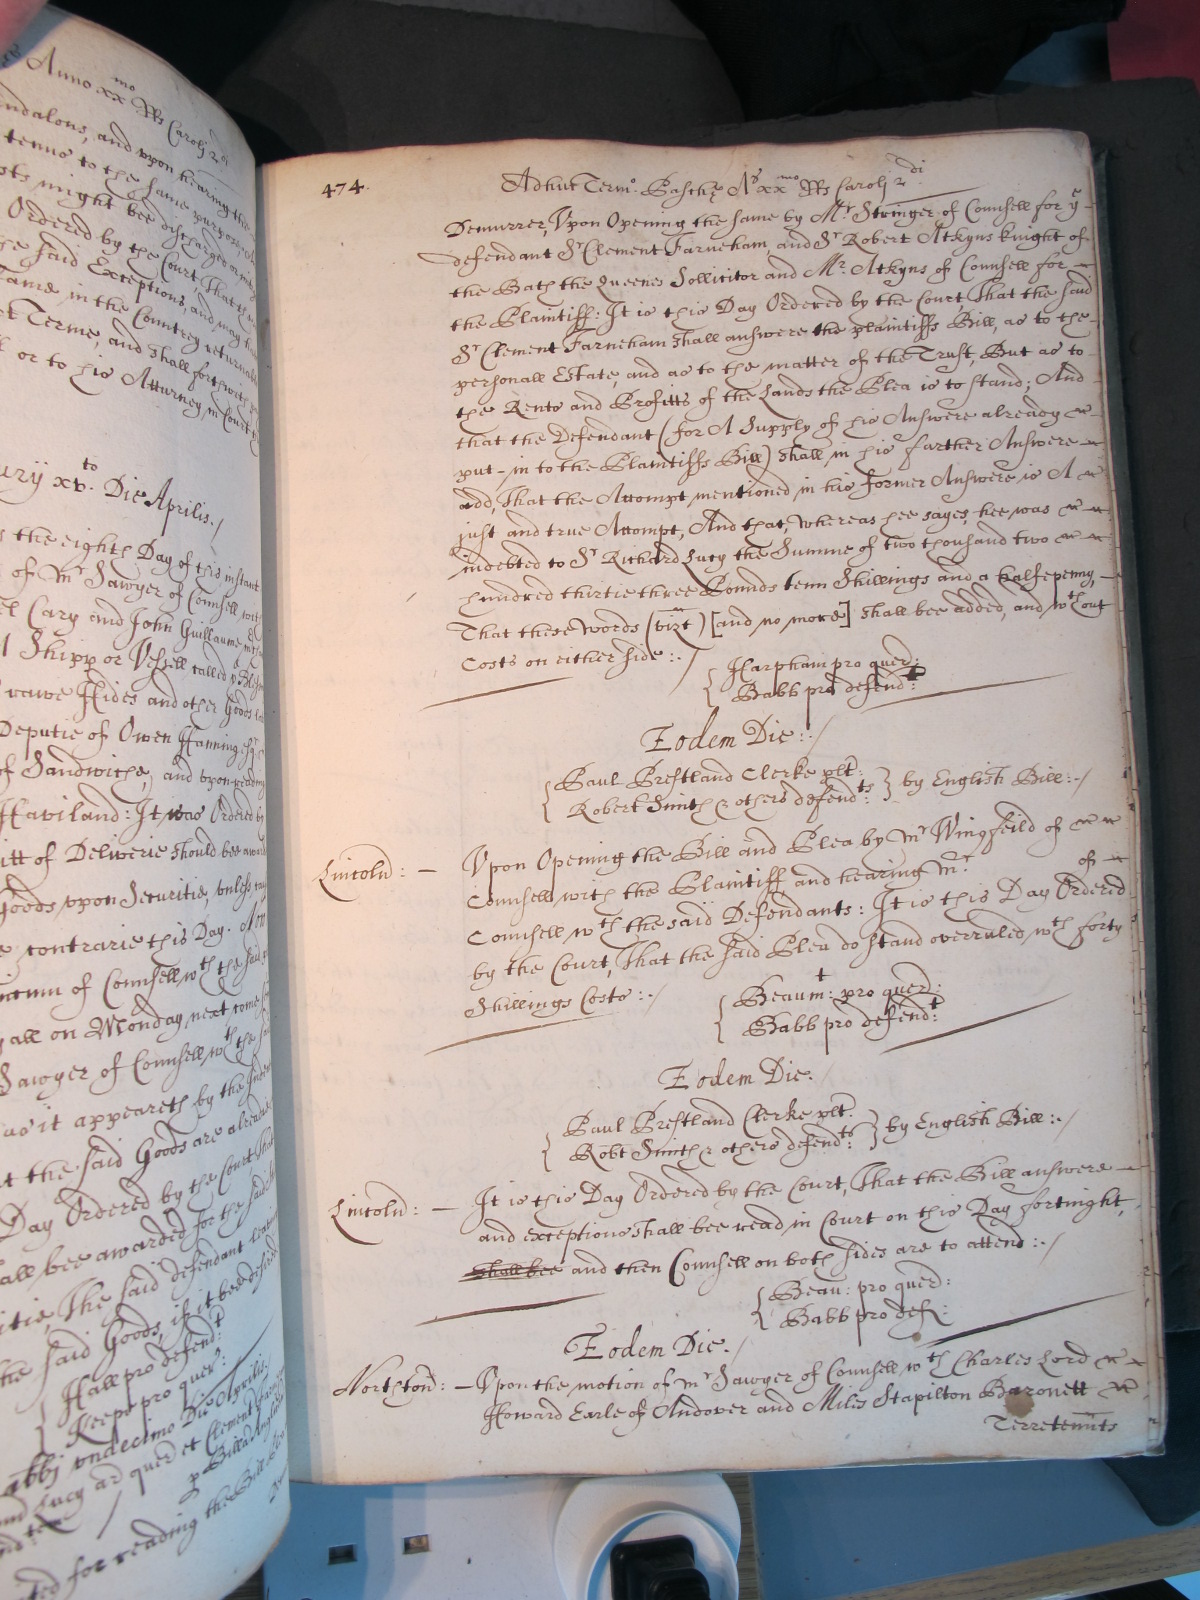 Anno xx mo RRs Carolj 2 di
ndalous, and vpon hearing the
tends to the same purpose
sts might bee discharged
Ordered by the Court, That the
he said Exceptions, and may
ame in the Countrey returnable
t Terme, and shall forthwith
or to his Atturney in Court
ury xv to Die Aprilis./
s the eighth Day of this instant
of Mr Sawyer of Counsell with
el Cary and John Guillaume
Shipp or Vessell called
rawe Hides and other Goods
Deputie of Owen Hanning esqr
of Sandwiche, and vpon reading
Haviland: It was Ordered by
itt of Deliverie should bee
Goods vpon Securitie, vnless
e contrarie this Day.
of Counsell wth the said
all on Monday next come
Sawyer of Counsell wth the
as it appeareth by the
t the said Goods are already
Day Ordered by the Court That
all bee awarded for the said
itie, The said defendant
the said Goods, if it bee
Hall pro defendt
Keepe pro quer:
vndecimo Die Aprilis.
Lucy ar quer et Clement
p Billa
ted for reading the Bill
474.
Adhuc Termo. Paschę Ao xx mo RRs Carolj 2 di
Demurrer, Vpon Opening the same by Mr Stringer of Counsell for ye
defendant Sr Clement Farneham, and Sr Robert Atkyns Knight of
the Bath the Queenes Sollicitor and Mr. Atkyns of Counsell for
the Plaintiff: It is this Day Ordered by the Court That the said
Sr Clement Farneham shall answere the plaintiffs Bill, as to the
personall Estate, and as to the matter of the Trust, But as to
the Rents and Profitts of the Lands the Plea is to stand; And
that the Defendant (for A Supply of his Answere already
put-in to the Plaintiffs Bill) shall in his farther Answere
add, That the Accompt mentioned in his former Answere is A
just and true Accompt, And that, whereas hee sayes, hee was
indebted to Sr Richard Lucy the Summe of two thousand two
hundred thirtie three Pounds tenn Shillings and a halfepenny,
That these words (vizt) [and no more] shall bee added, and wthout
Costs on either side:./
Harpham pro quer:
Babb pro defendt:
Eodem Die:./
Paul Prestland Clerke plt:
Robert Smith & others defendts: } by English Bill:./
Lincoln: — Vpon Opening the Bill and Plea by Mr Wingfeild of
Counsell with the Plaintiff and hearing Mr. of
Counsell wth the said Defendants: It is this Day Ordered
by the Court, That the said Plea do stand overruled wth forty
Shillings Costs:./
Beaumt: pro quer:
Babb pro defendt:
Eodem Die:
Paul Prestland Clerke plt:
Robt Smith & others defendts: } by English Bill:./
Lincoln: — It is this Day Ordered by the Court, That the Bill answere
and exceptions shall bee read in Court on this Day fortnight,
shall bee and then Counsell on both sides are to attend:./
Beau: pro quer:
Babb pro def:
Eodem Die./
Northton: — Vpon the motion of Mr Sawyer of Counsell wth Charles Lord
Howard Earle of Andover and Miles Stapilton Baronett
Terretennts